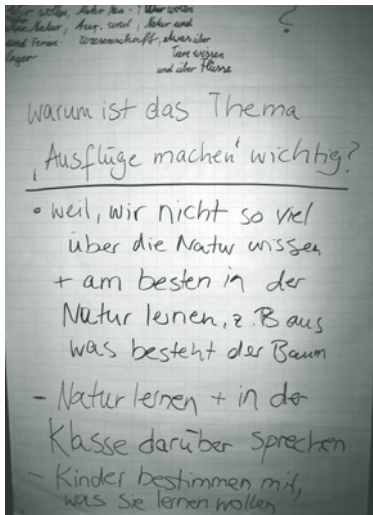 wollen, Natur
Natur, und, Natur und
und Ferien. Wissenschaft, etwas über
lager Tiere wissen
und über Flüsse
?
Warum ist das Thema
'Ausflüge machen' wichtig?
• weil, wir nicht so viel
über die Natur wissen
+ am besten in der
Natur lernen, z.B aus
was besteht der Baum
- Natur lernen + in der
Klasse darüber sprechen
- Kinder bestimmen mit,
was sie lernen wollen